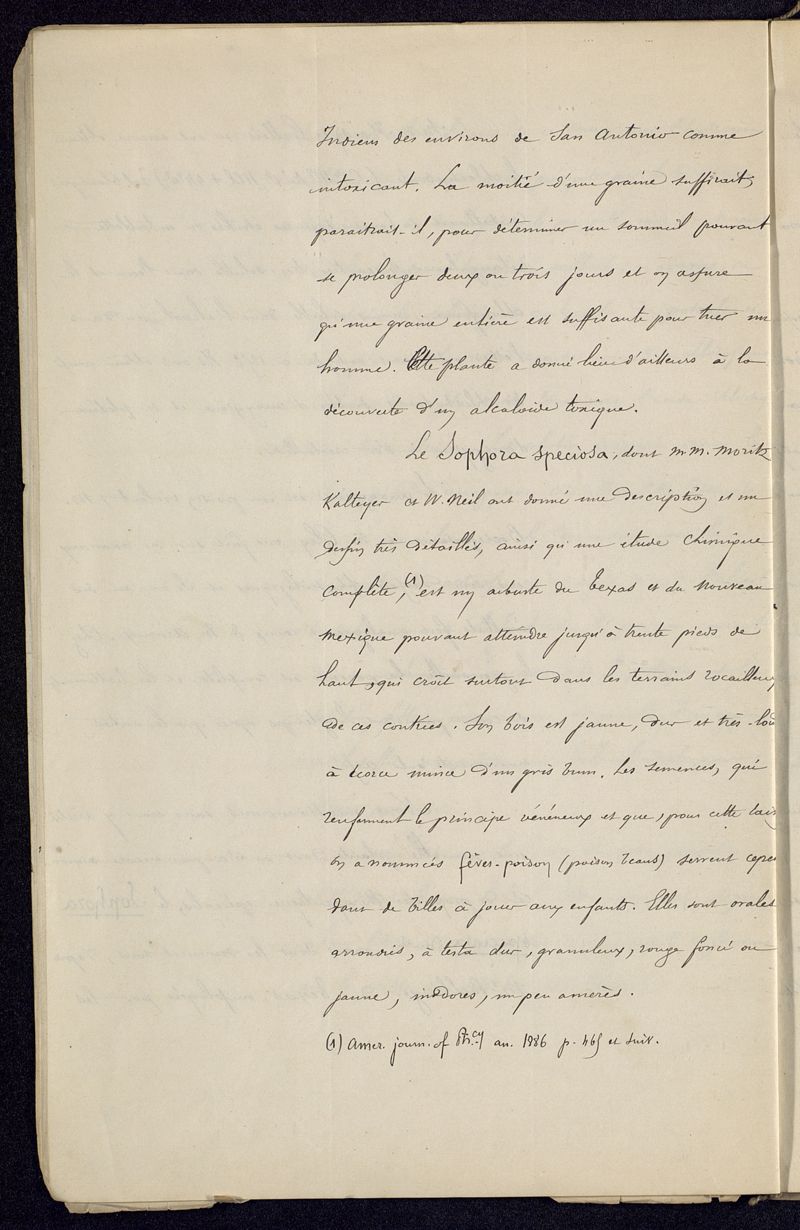 Indiens des environs de San Antonio comme
intoxicant. La moitié d'une graine suffirait,
paraitrait-il, pour déterminer un sommeil pouvant
se prolonger deux ou trois jours et on assure
qu'une graine entière est suffisante pour tuer un
homme. Cette plante a donné lieu d'ailleurs à la
découverte d'un alcaloïde toxique.
Le Sophora speciosa, dont M.M. Moritz
Kalteyer et W. Neil ont donné une description et un
dessin très détaillés, ainsi qu'une étude chimique
complète,(1) est un arbuste du Texas et du Nouveau
Mexique pouvant atteindre jusqu'à trente pieds de
haut, qui croît surtout dans les terrains rocailleux
de ces contrées. Son bois est jaune, dur et très
à écorce mince d'un gris brun. Les semences, qui
renferment le principe vénéneux et que, pour cette
on a nommées fèves-poison (poison beans) servent cepen
dant de billes à jouer aux enfants. Elles sont ovales
arrondies, à testa dur, granuleux, rouge foncé ou
jaune, inodores, un peu amères.
(1) Amer. journ. of Ph.cy an. 1886 p. 465 et suiv.